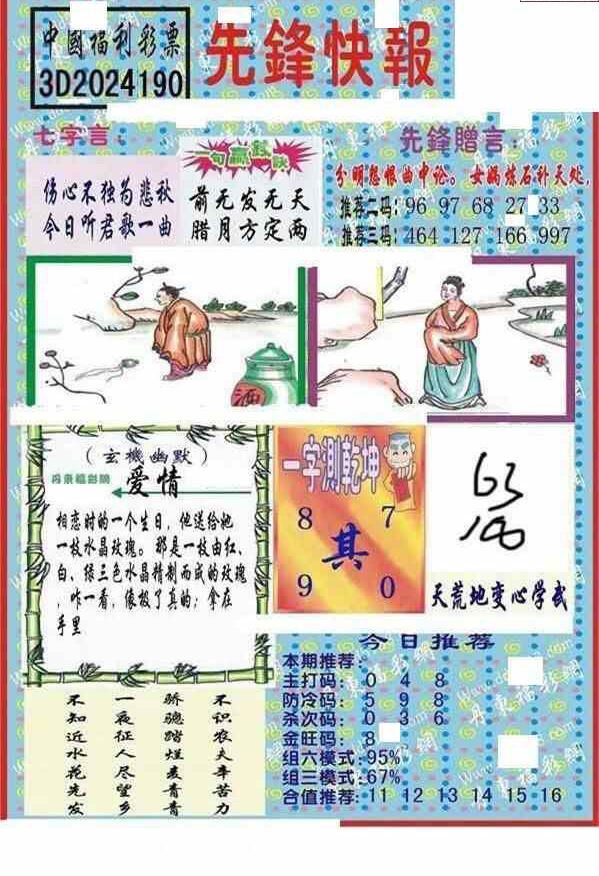 中國福利彩票
3D2024190
先鋒快報
七字言：
伤心不独为悲秋
今日听君歌一曲
一句赢钱诀
前无发无天
腊月方定两
先鋒贈言：
分明怨恨曲中论。女娲炼石补天处，
推荐二码：96 97 68 27 33
推荐三码：464 127 166 997
酒
（玄機幽默）
丹東福彩網
爱情
相恋时的一个生日，他送给她
一枝水晶玫瑰。那是一枝由红、
白、绿三色水晶精制而成的玫瑰
，咋一看，像极了真的；拿在
手里
一字測乾坤
8 7
其
9 0
天荒地变心学武
不知近水花先发
一夜征人尽望乡
骄骢踏烂麦青青
不识农夫辛苦力
今日推荐
本期推荐：
主打码：0 4 8
防冷码：5 9 8
杀次码：0 3 6
金旺码：8
组六模式：95%
组三模式：67%
合值推荐：11 12 13 14 15 16